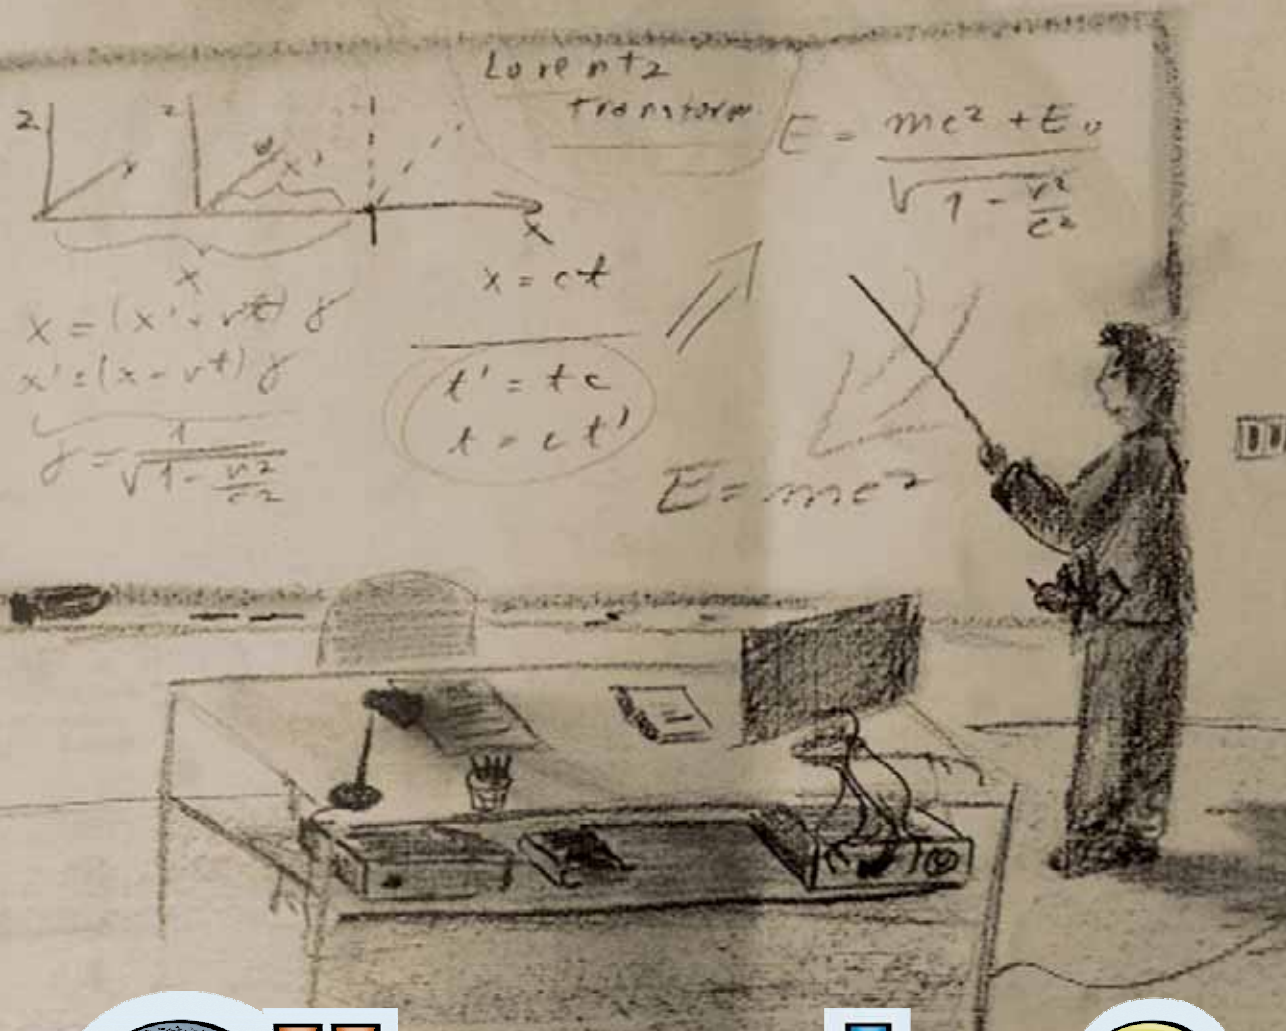 Lorentz
Transform
z
z
x'
x
x
x = (x' + vt) γ
x' = (x - vt) γ
γ = 1 / √(1 - v²/c²)
x = ct
t' = tc
t = ct'
E = (mc² + E₀) / √(1 - v²/c²)
E = mc²